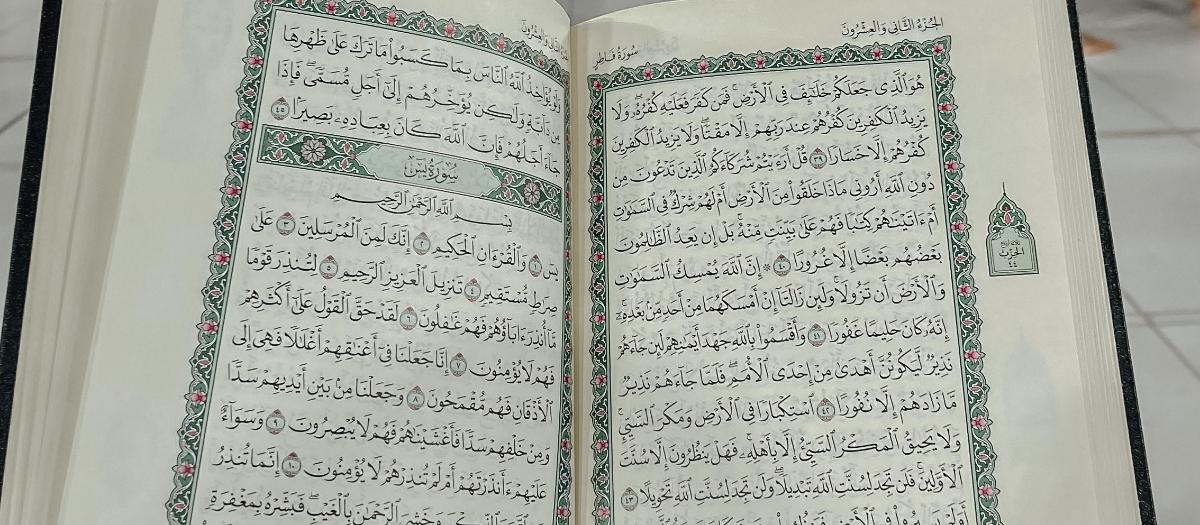 الجُزْءُ الثَّانِي وَالعِشْرُونَ
سُورَةُ فَاطِر
هُوَ ٱلَّذِى جَعَلَكُمْ خَلَٰٓئِفَ فِى ٱلْأَرْضِ ۚ فَمَن كَفَرَ فَعَلَيْهِ كُفْرُهُۥ ۖ وَلَا
يَزِيدُ ٱلْكَٰفِرِينَ كُفْرُهُمْ عِندَ رَبِّهِمْ إِلَّا مَقْتًا ۖ وَلَا يَزِيدُ ٱلْكَٰفِرِينَ
كُفْرُهُمْ إِلَّا خَسَارًا ٣٩ قُلْ أَرَءَيْتُمْ شُرَكَآءَكُمُ ٱلَّذِينَ تَدْعُونَ مِن
دُونِ ٱللَّهِ أَرُونِى مَاذَا خَلَقُوا۟ مِنَ ٱلْأَرْضِ أَمْ لَهُمْ شِرْكٌ فِى ٱلسَّمَٰوَٰتِ
أَمْ ءَاتَيْنَٰهُمْ كِتَٰبًا فَهُمْ عَلَىٰ بَيِّنَتٍ مِّنْهُ ۚ بَلْ إِن يَعِدُ ٱلظَّٰلِمُونَ
بَعْضُهُم بَعْضًا إِلَّا غُرُورًا ٤٠ ۞ إِنَّ ٱللَّهَ يُمْسِكُ ٱلسَّمَٰوَٰتِ
وَٱلْأَرْضَ أَن تَزُولَا ۚ وَلَئِن زَالَتَآ إِنْ أَمْسَكَهُمَا مِنْ أَحَدٍ مِّنۢ بَعْدِهِۦٓ ۚ
إِنَّهُۥ كَانَ حَلِيمًا غَفُورًا ٤١ وَأَقْسَمُوا۟ بِٱللَّهِ جَهْدَ أَيْمَٰنِهِمْ لَئِن جَآءَهُمْ
نَذِيرٌ لَّيَكُونُنَّ أَهْدَىٰ مِنْ إِحْدَى ٱلْأُمَمِ ۖ فَلَمَّا جَآءَهُمْ نَذِيرٌ
مَّا زَادَهُمْ إِلَّا نُفُورًا ٤٢ ٱسْتِكْبَارًا فِى ٱلْأَرْضِ وَمَكْرَ ٱلسَّيِّئِ ۚ
وَلَا يَحِيقُ ٱلْمَكْرُ ٱلسَّيِّئُ إِلَّا بِأَهْلِهِۦ ۚ فَهَلْ يَنظُرُونَ إِلَّا سُنَّتَ
ٱلْأَوَّلِينَ ۚ فَلَن تَجِدَ لِسُنَّتِ ٱللَّهِ تَبْدِيلًا ۖ وَلَن تَجِدَ لِسُنَّتِ ٱللَّهِ تَحْوِيلًا ٤٣
الحِزْبُ
٤٤
وَلَوْ يُؤَاخِذُ ٱللَّهُ ٱلنَّاسَ بِمَا كَسَبُوا۟ مَا تَرَكَ عَلَىٰ ظَهْرِهَا
مِن دَآبَّةٍ وَلَٰكِن يُؤَخِّرُهُمْ إِلَىٰٓ أَجَلٍ مُّسَمًّى ۖ فَإِذَا
جَآءَ أَجَلُهُمْ فَإِنَّ ٱللَّهَ كَانَ بِعِبَادِهِۦ بَصِيرًۢا ٤٥
سُورَةُ يسٓ
بِسْمِ ٱللَّهِ ٱلرَّحْمَٰنِ ٱلرَّحِيمِ
يسٓ ١ وَٱلْقُرْءَانِ ٱلْحَكِيمِ ٢ إِنَّكَ لَمِنَ ٱلْمُرْسَلِينَ ٣ عَلَىٰ
صِرَٰطٍ مُّسْتَقِيمٍ ٤ تَنزِيلَ ٱلْعَزِيزِ ٱلرَّحِيمِ ٥ لِتُنذِرَ قَوْمًا
مَّآ أُنذِرَ ءَابَآؤُهُمْ فَهُمْ غَٰفِلُونَ ٦ لَقَدْ حَقَّ ٱلْقَوْلُ عَلَىٰٓ أَكْثَرِهِمْ
فَهُمْ لَا يُؤْمِنُونَ ٧ إِنَّا جَعَلْنَا فِىٓ أَعْنَٰقِهِمْ أَغْلَٰلًا فَهِىَ إِلَى
ٱلْأَذْقَانِ فَهُم مُّقْمَحُونَ ٨ وَجَعَلْنَا مِنۢ بَيْنِ أَيْدِيهِمْ سَدًّا
وَمِنْ خَلْفِهِمْ سَدًّا فَأَغْشَيْنَٰهُمْ فَهُمْ لَا يُبْصِرُونَ ٩ وَسَوَآءٌ
عَلَيْهِمْ ءَأَنذَرْتَهُمْ أَمْ لَمْ تُنذِرْهُمْ لَا يُؤْمِنُونَ ١٠ إِنَّمَا تُنذِرُ
وَخَشِىَ ٱلرَّحْمَٰنَ بِٱلْغَيْبِ ۖ فَبَشِّرْهُ بِمَغْفِرَةٍ